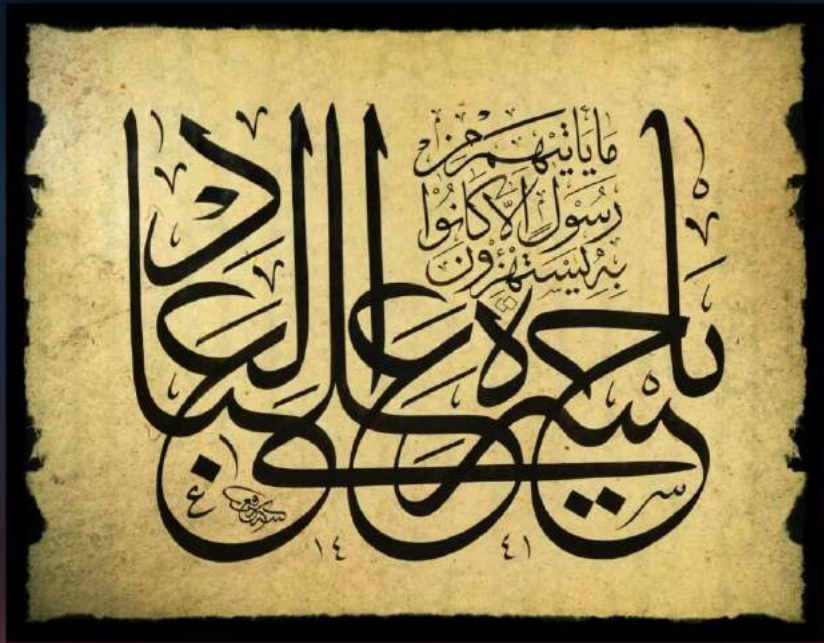 يا حسرة على العباد
ما يأتيهم من
رسول الا كانوا
به يستهزؤن
١٤٤١